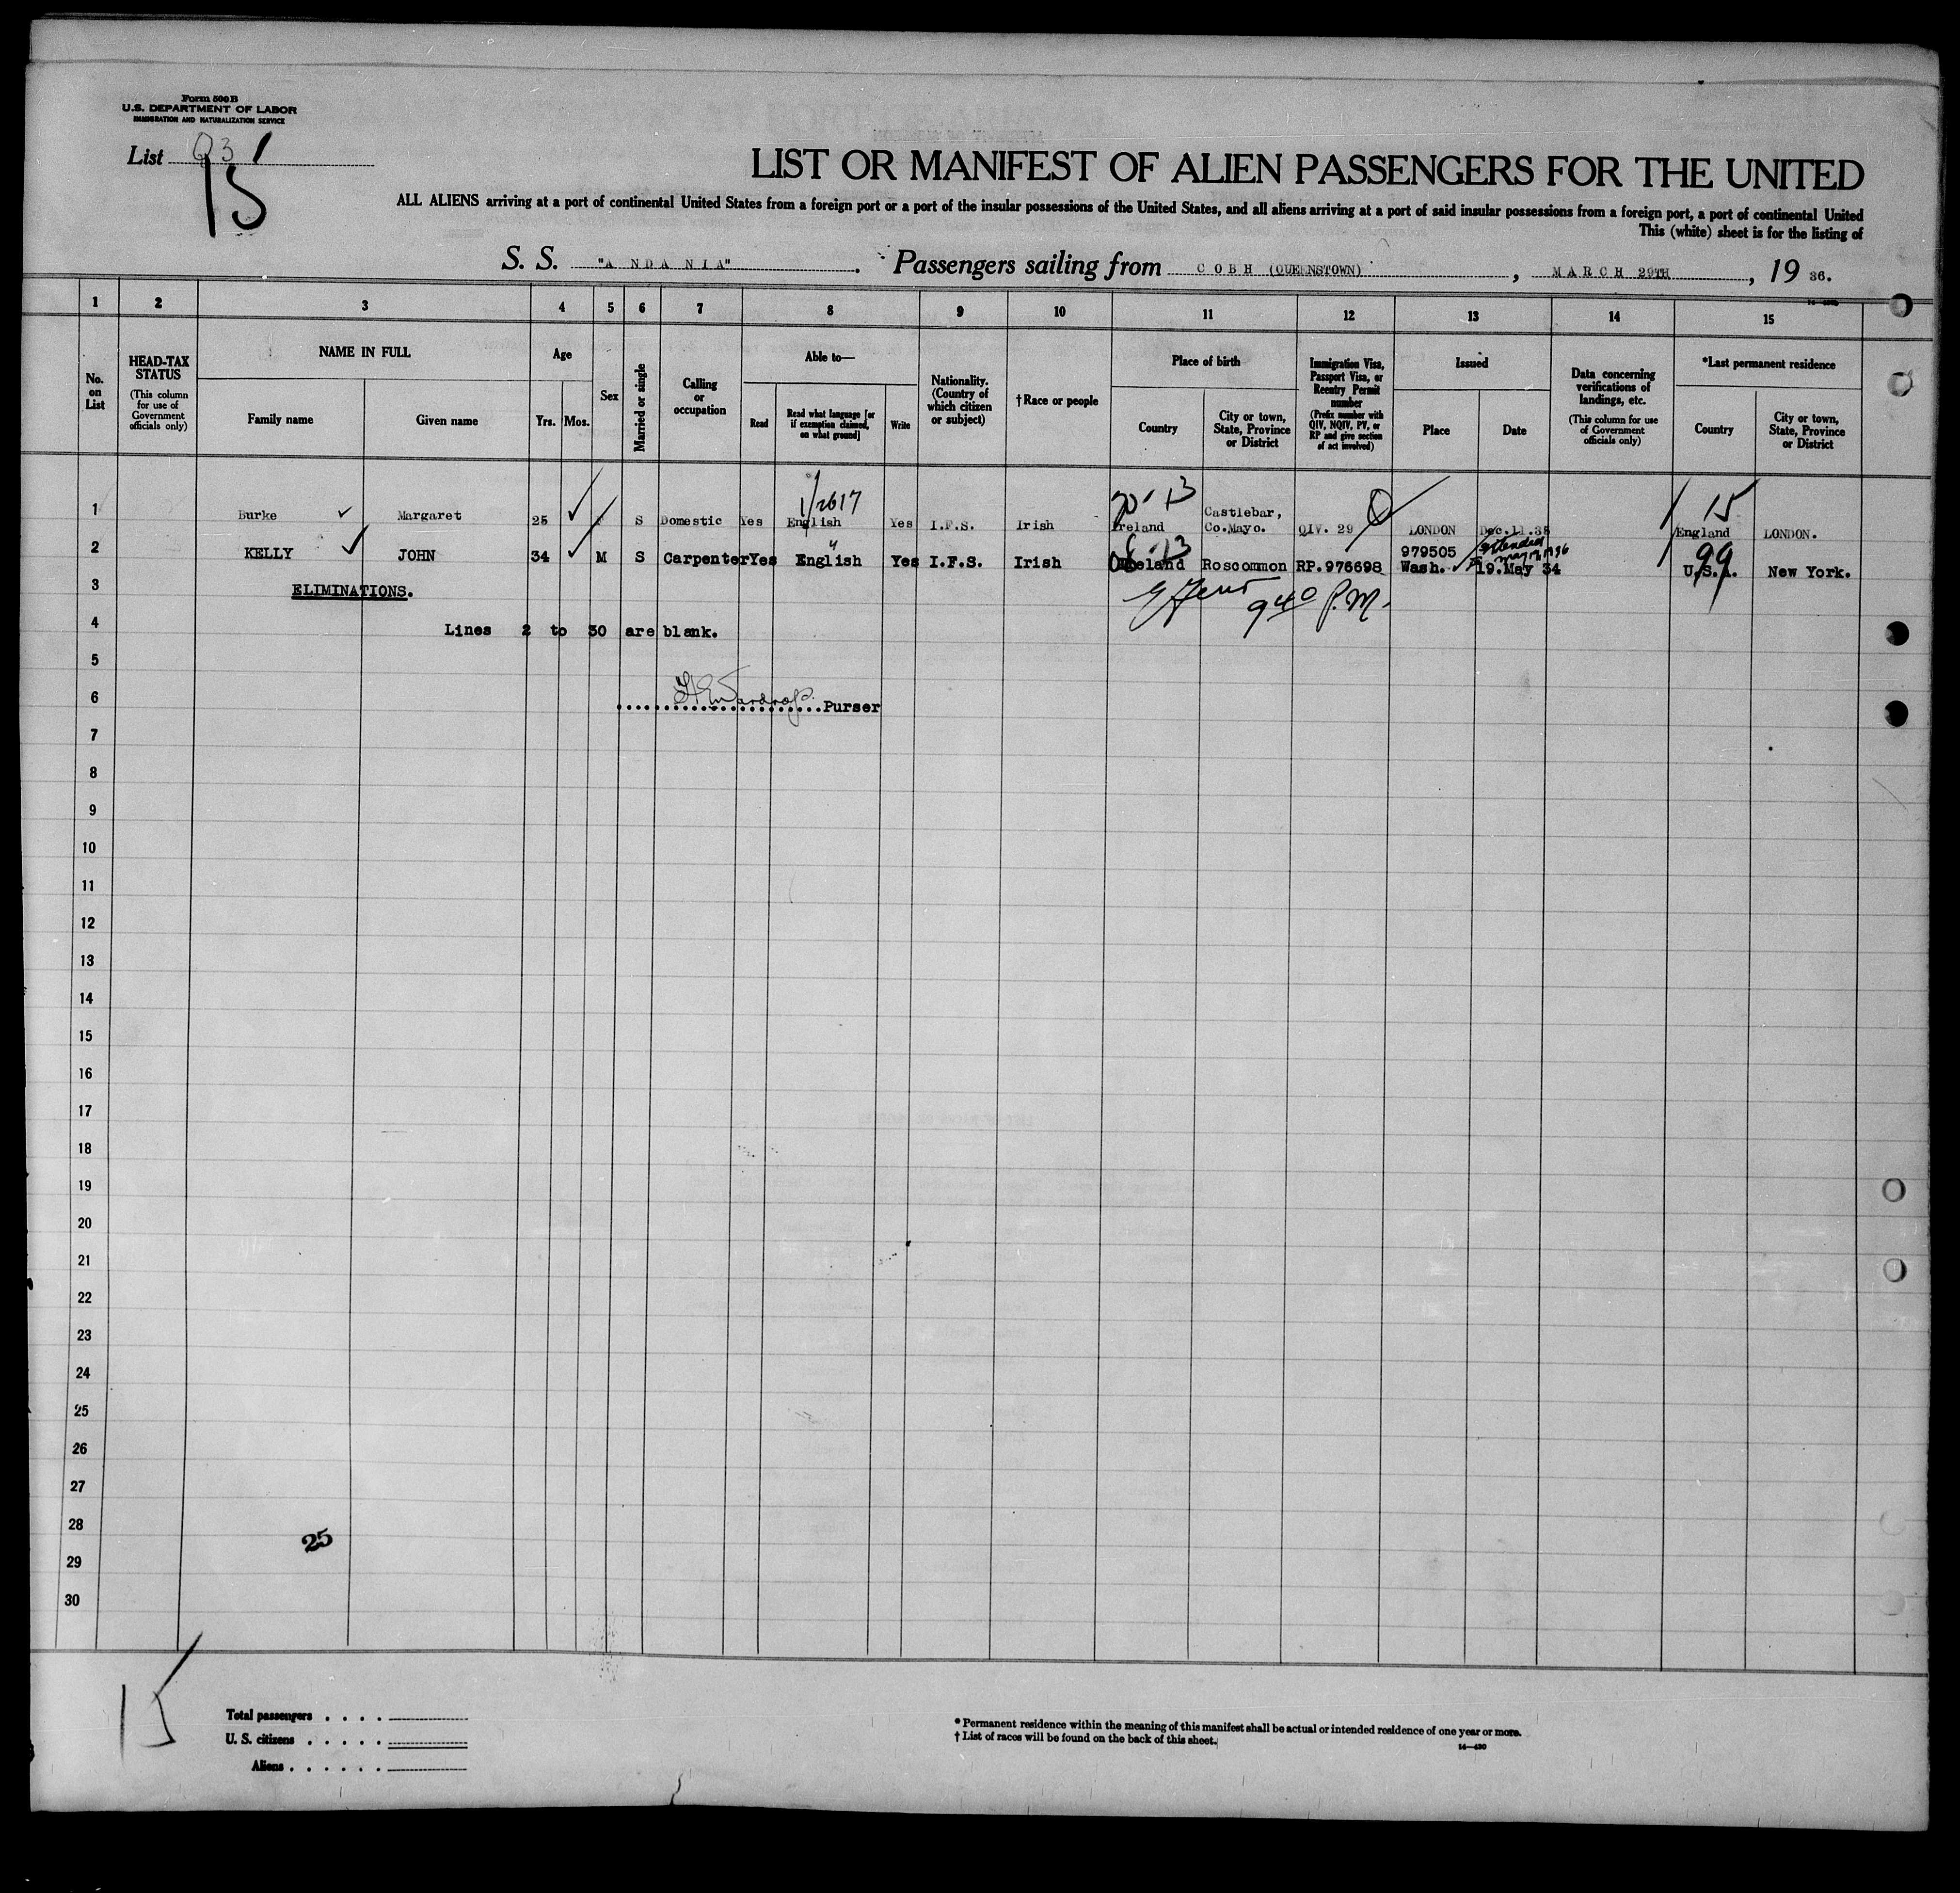 Form 500 B
U.S. DEPARTMENT OF LABOR
IMMIGRATION AND NATURALIZATION SERVICE
List 93 1
15
LIST OR MANIFEST OF ALIEN PASSENGERS FOR THE UNITED
ALL ALIENS arriving at a port of continental United States from a foreign port or a port of the insular possessions of the United States, and all aliens arriving at a port of said insular possessions from a foreign port, a port of continental United
This (white) sheet is for the listing of
S. S. "ANDANIA". Passengers sailing from COBH (QUEENSTOWN), MARCH 29TH, 1936.
1 2 3 4 5 6 7 8 9 10 11 12 13 14 15
No. on List
HEAD-TAX STATUS
(This column for use of Government officials only)
NAME IN FULL
Family name
Given name
Age
Yrs.
Mos.
Sex
Married or single
Calling or occupation
Able to—
Read
Read what language [or if exemption claimed, on what ground]
Write
Nationality. (Country of which citizen or subject)
† Race or people
Place of birth
Country
City or town, State, Province or District
Immigration Visa, Passport Visa, or Reentry Permit number
(Prefix number with QIV, NQIV, PV, or RP and give section of act involved)
Issued
Place
Date
Data concerning verifications of landings, etc.
(This column for use of Government officials only)
*Last permanent residence
Country
City or town, State, Province or District
1/2617 20-13 15
1 Burke Margaret 25 F S Domestic Yes English Yes I.F.S. Irish Ireland Castlebar, Co.Mayo. QIV. 29 LONDON Dec.11.35 England LONDON.
08-13 979505 extended May 19, 1936 99
2 KELLY JOHN 34 M S Carpenter Yes English Yes I.F.S. Irish Ireland Roscommon RP.976698 Wash. 19.May 34 U.S.A. New York.
3 ELIMINATIONS.
9 40 P.M.
4 Lines 2 to 30 are blank.
5
6 Purser
7
8
9
10
11
12
13
14
15
16
17
18
19
20
21
22
23
24
25
26
27
28
25
29
30
15
Total passengers
U. S. citizens
Aliens
* Permanent residence within the meaning of this manifest shall be actual or intended residence of one year or more.
† List of races will be found on the back of this sheet.
14—430